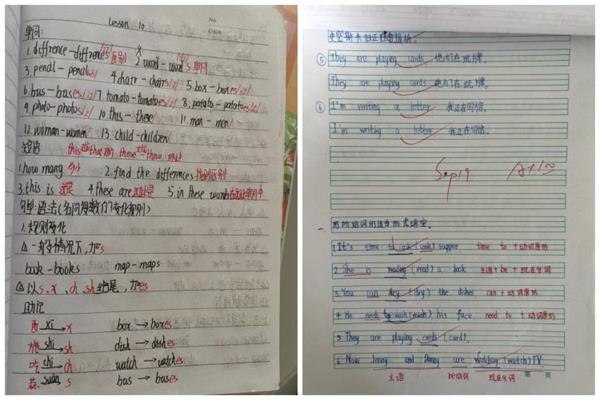 Lesson 19
No
Date
单词:
1. diffrence-diffrences 区别
2. word-words 单词
3. pencil-pencils
4. chair-chairs
5. box-boxes
6. bus-buses
7. tomato-tomatoes
8. potato-potatoes
9. photo-photos
10. this-these
11. man-men
12. woman-women
13. child-children
短语
1. how many 多少
2. find the differences 找出区别
3. this is 这是
4. these are 这些是
5. in these words 在这些单词中
1. 规则变化
△一般情况下, 加s
book-books map-maps
△以s, x, ch, sh结尾, 加es
助记
xi → x box → boxes
shi → sh dish → dishes
吃 chi → ch watch → watches
s bus → buses
⑤ They are playing cards 他们在玩牌.
They are playing cards 他们在玩牌.
⑥ I'm writing a letter 我正在写信.
I'm writing a letter 我正在写信.
Sep19 A+100
一. 用所给词的适当形式填空.
1. It's time to cook (cook) supper time to +动词原形
2. She is reading (read) a book 主语+be+现在分词
3. You can dry (dry) the dishes can+动词原形
4. He needs to wash (wash) his face need to +动词原形
5. They are playing cards (card).
6. Now Jenny and Danny are watching (watch) TV.
主语 be动词 现在分词
第 页